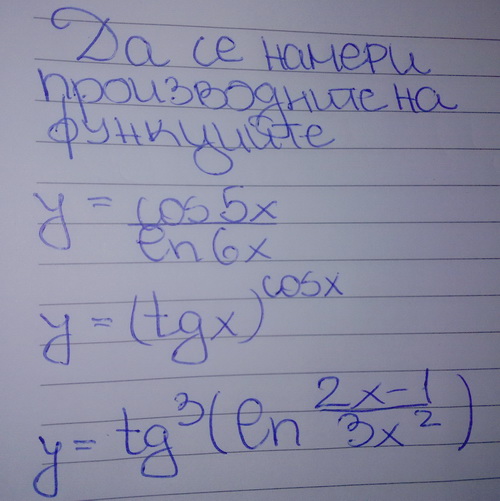 Да се намери
производните на
функциите
y = cos5x / ln6x
y = (tgx)^cosx
y = tg^3(ln (2x-1)/(3x^2))